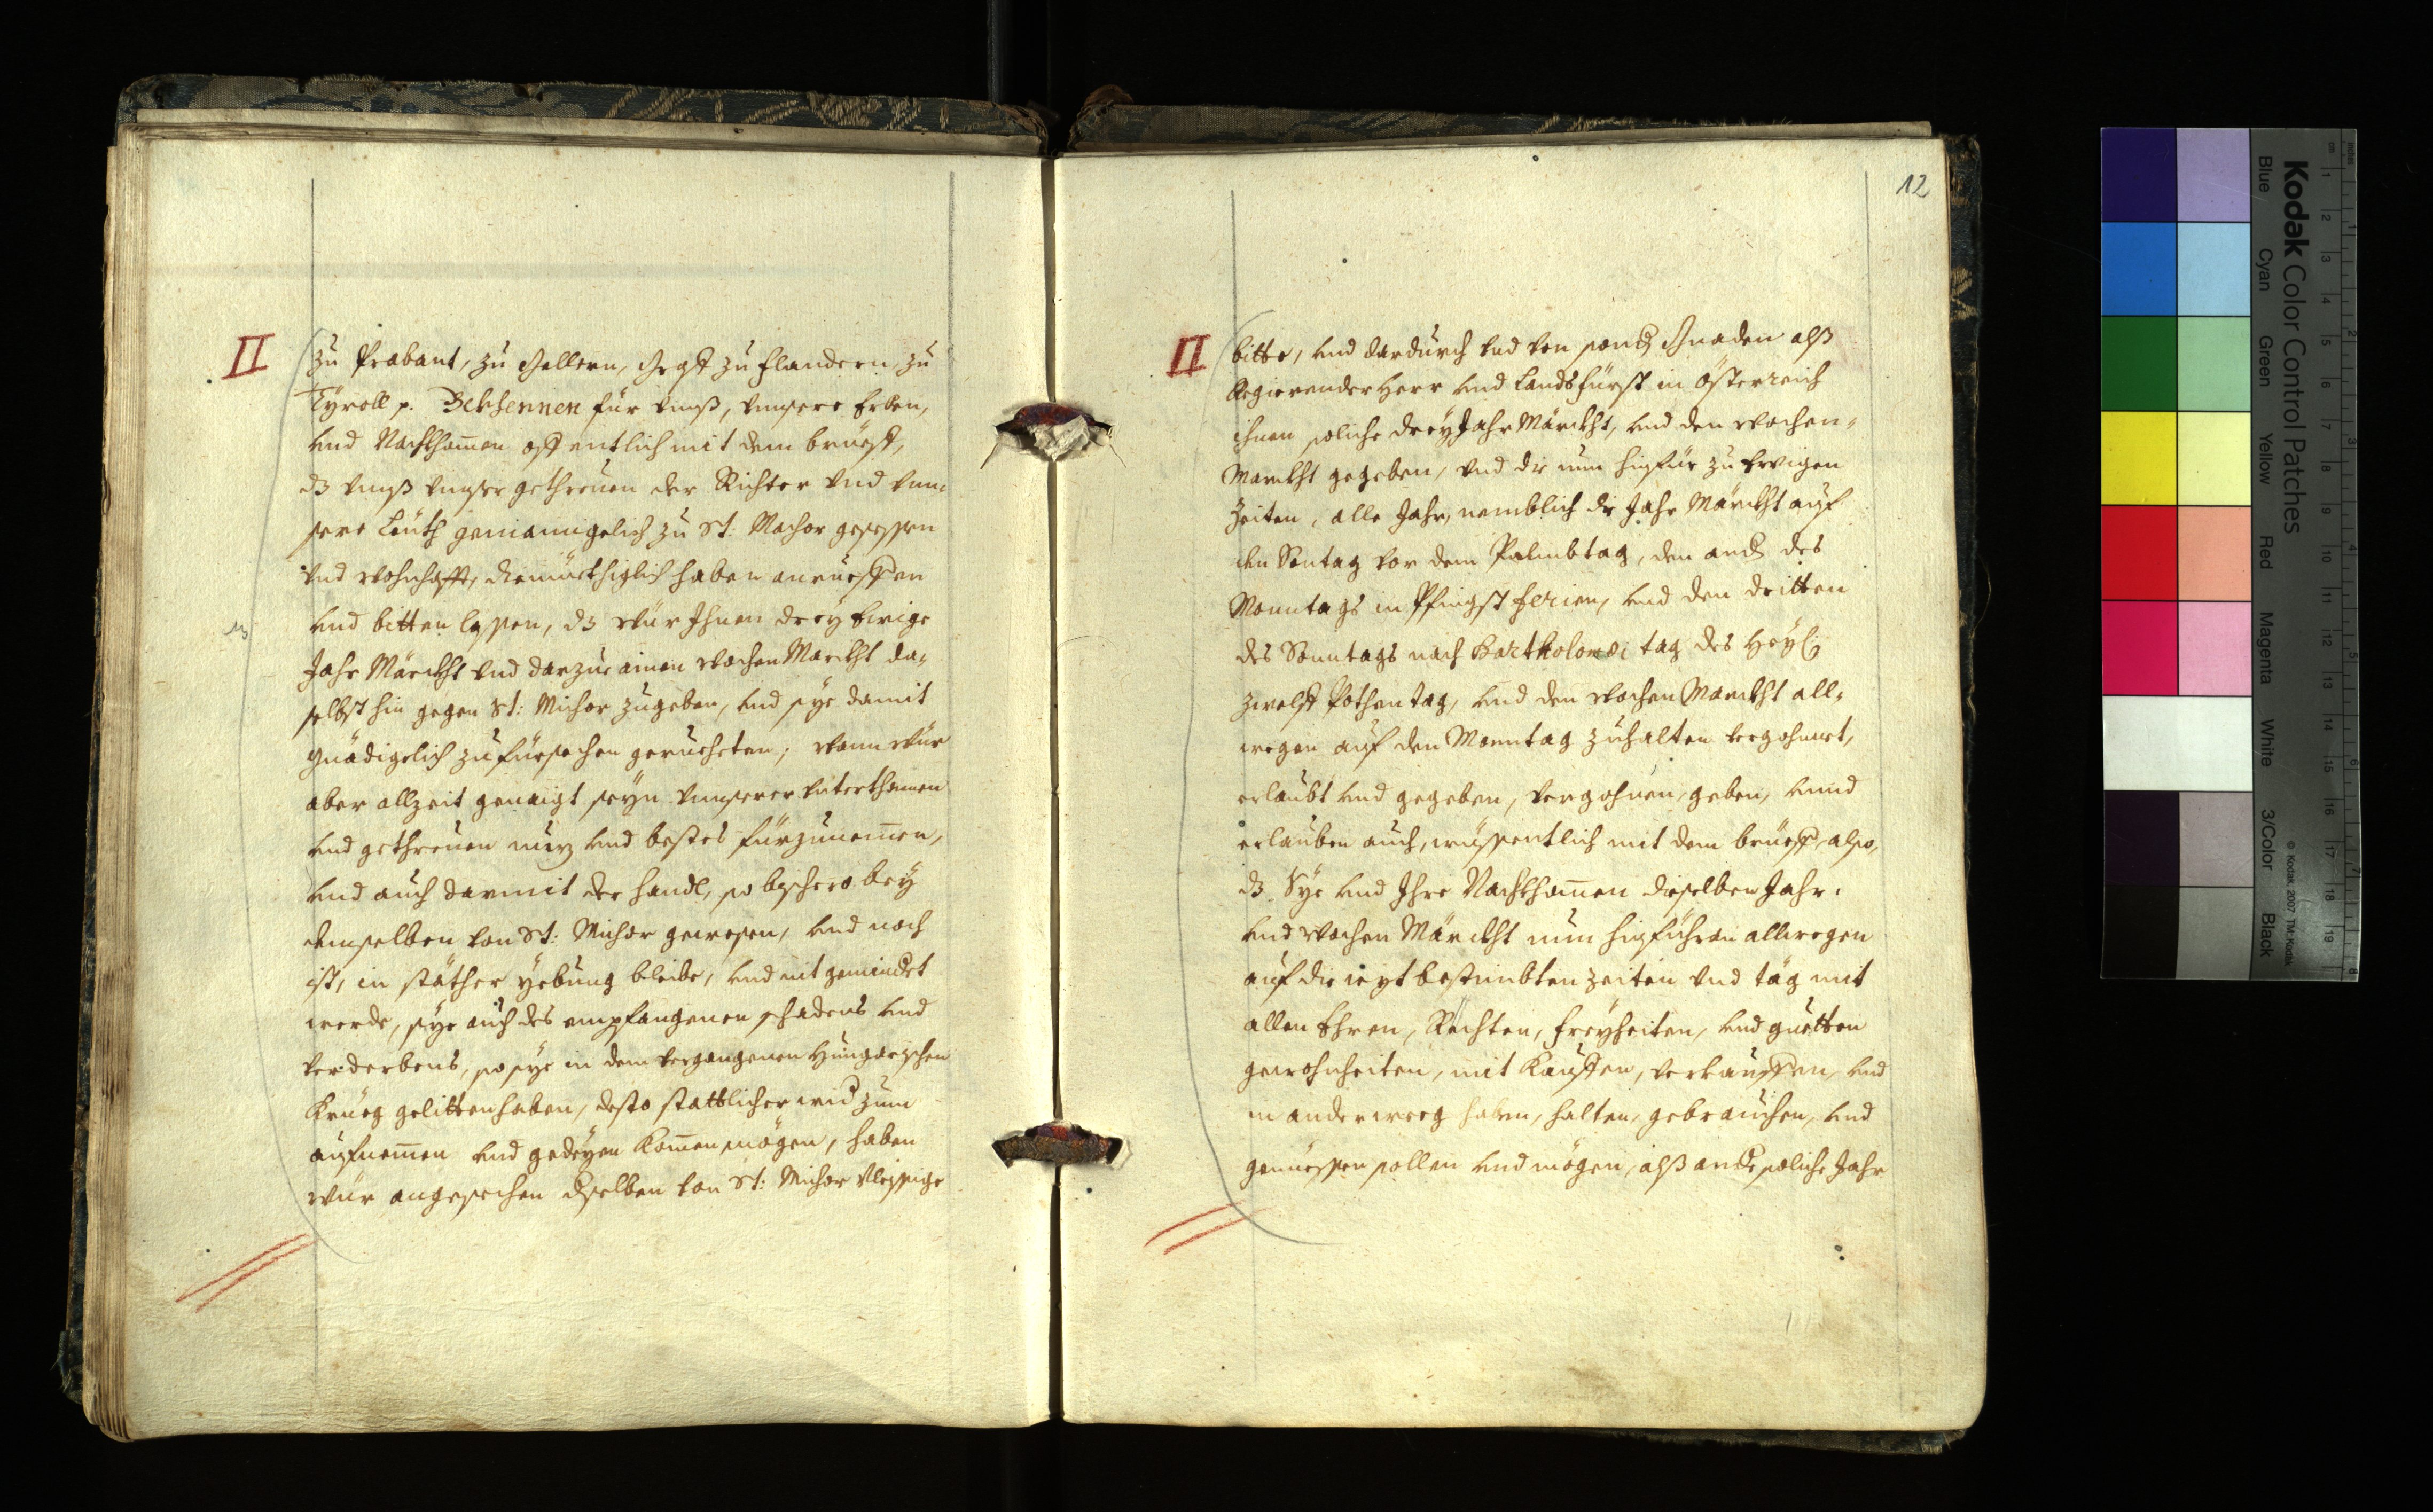 II
zu Prabant, zu Gellern, Graff zu Flandern, zu
Tÿroll p. Bekhennen für vnnß, vnnsere Erben,
vnd Nachkhom̄en offentlich mit dem brüeff,
dz vnnß vnnser gethreüen der Richter vnd vnn-
sere Leüth gemainigelich zu St. Machor gesessen
vnd wohnhafft, diemüethiglich haben anrueffen
vnd bitten lassen, dz wür Ihnen dreÿ Ewige
Jahr Märckht vnd darzue ainen wochen Marckht da-
selbst hin gegen St: Michor zugeben, vnd sÿe damit
gnädigelich zufürsechen geruechten; wann wür
aber allzeit genaigt seÿn vnnserer vnterthannen
vnd gethreuen nuz vnd bestes fürzunem̄en,
vnd auch darmit der handl, so bißhero beÿ
demselben von St: Michor gewesen, vnd noch
ist, in stäther yebung bleibe, vnd nit gemindert
werde, sÿe auch des empfangenen schadens vnd
verderbens, so sÿe in dem vergangenen Hungarischen
Krüeg gelitten haben, desto stattlicher wid zum
aufnem̄en vnd gedeÿen kom̄en mögen, haben
wür angesechen dselben von St: Michor vleissige
12
II
bitte, vnd dardurch vnd von sond Gnaden alß
Regierender Herr vnd Landsfürst in Österreich
ihnen soliche dreÿ Jahr Märckht, vnd den wochen-
Marckht gegeben, vnd die nun hinfür zu Ewigen
Zeiten, alle Jahr, nemblich die Jahr Märckht auf
den Sontag vor dem Palmbtag, den and des
Monntags in Pfingst ferien, vnd den dritten
des Sonntags nach Bartholomei tag des Heÿl:
zwelff Pothen tag, vnd den wochen Marckht all-
wegen auf den Monntag zuhalten vergohnet,
erlaubt vnd gegeben, vergohnen, geben, vnnd
erlauben auch, wüssentlich mit dem brüeff, also,
dz Sÿe vnd Ihre Nachkhom̄en dieselben Jahr-
vnd wochen Märckht nun hinführan allwegen
auf die iezt bestimbten zeiten vnd täg mit
allen Ehren, Rechten, freÿheiten, vnd guetten
gewohnheiten, mit Kauffen, verkauffen, vnd
in anderweeg haben, halten, gebrauchen, vnd
genüessen sollen vnd mögen, alß ande soliche Jahr
Kodak Color Control Patches
Blue
Cyan
Green
Yellow
Red
Magenta
White
3/Color
Black
© Kodak, 2007 TM: Kodak